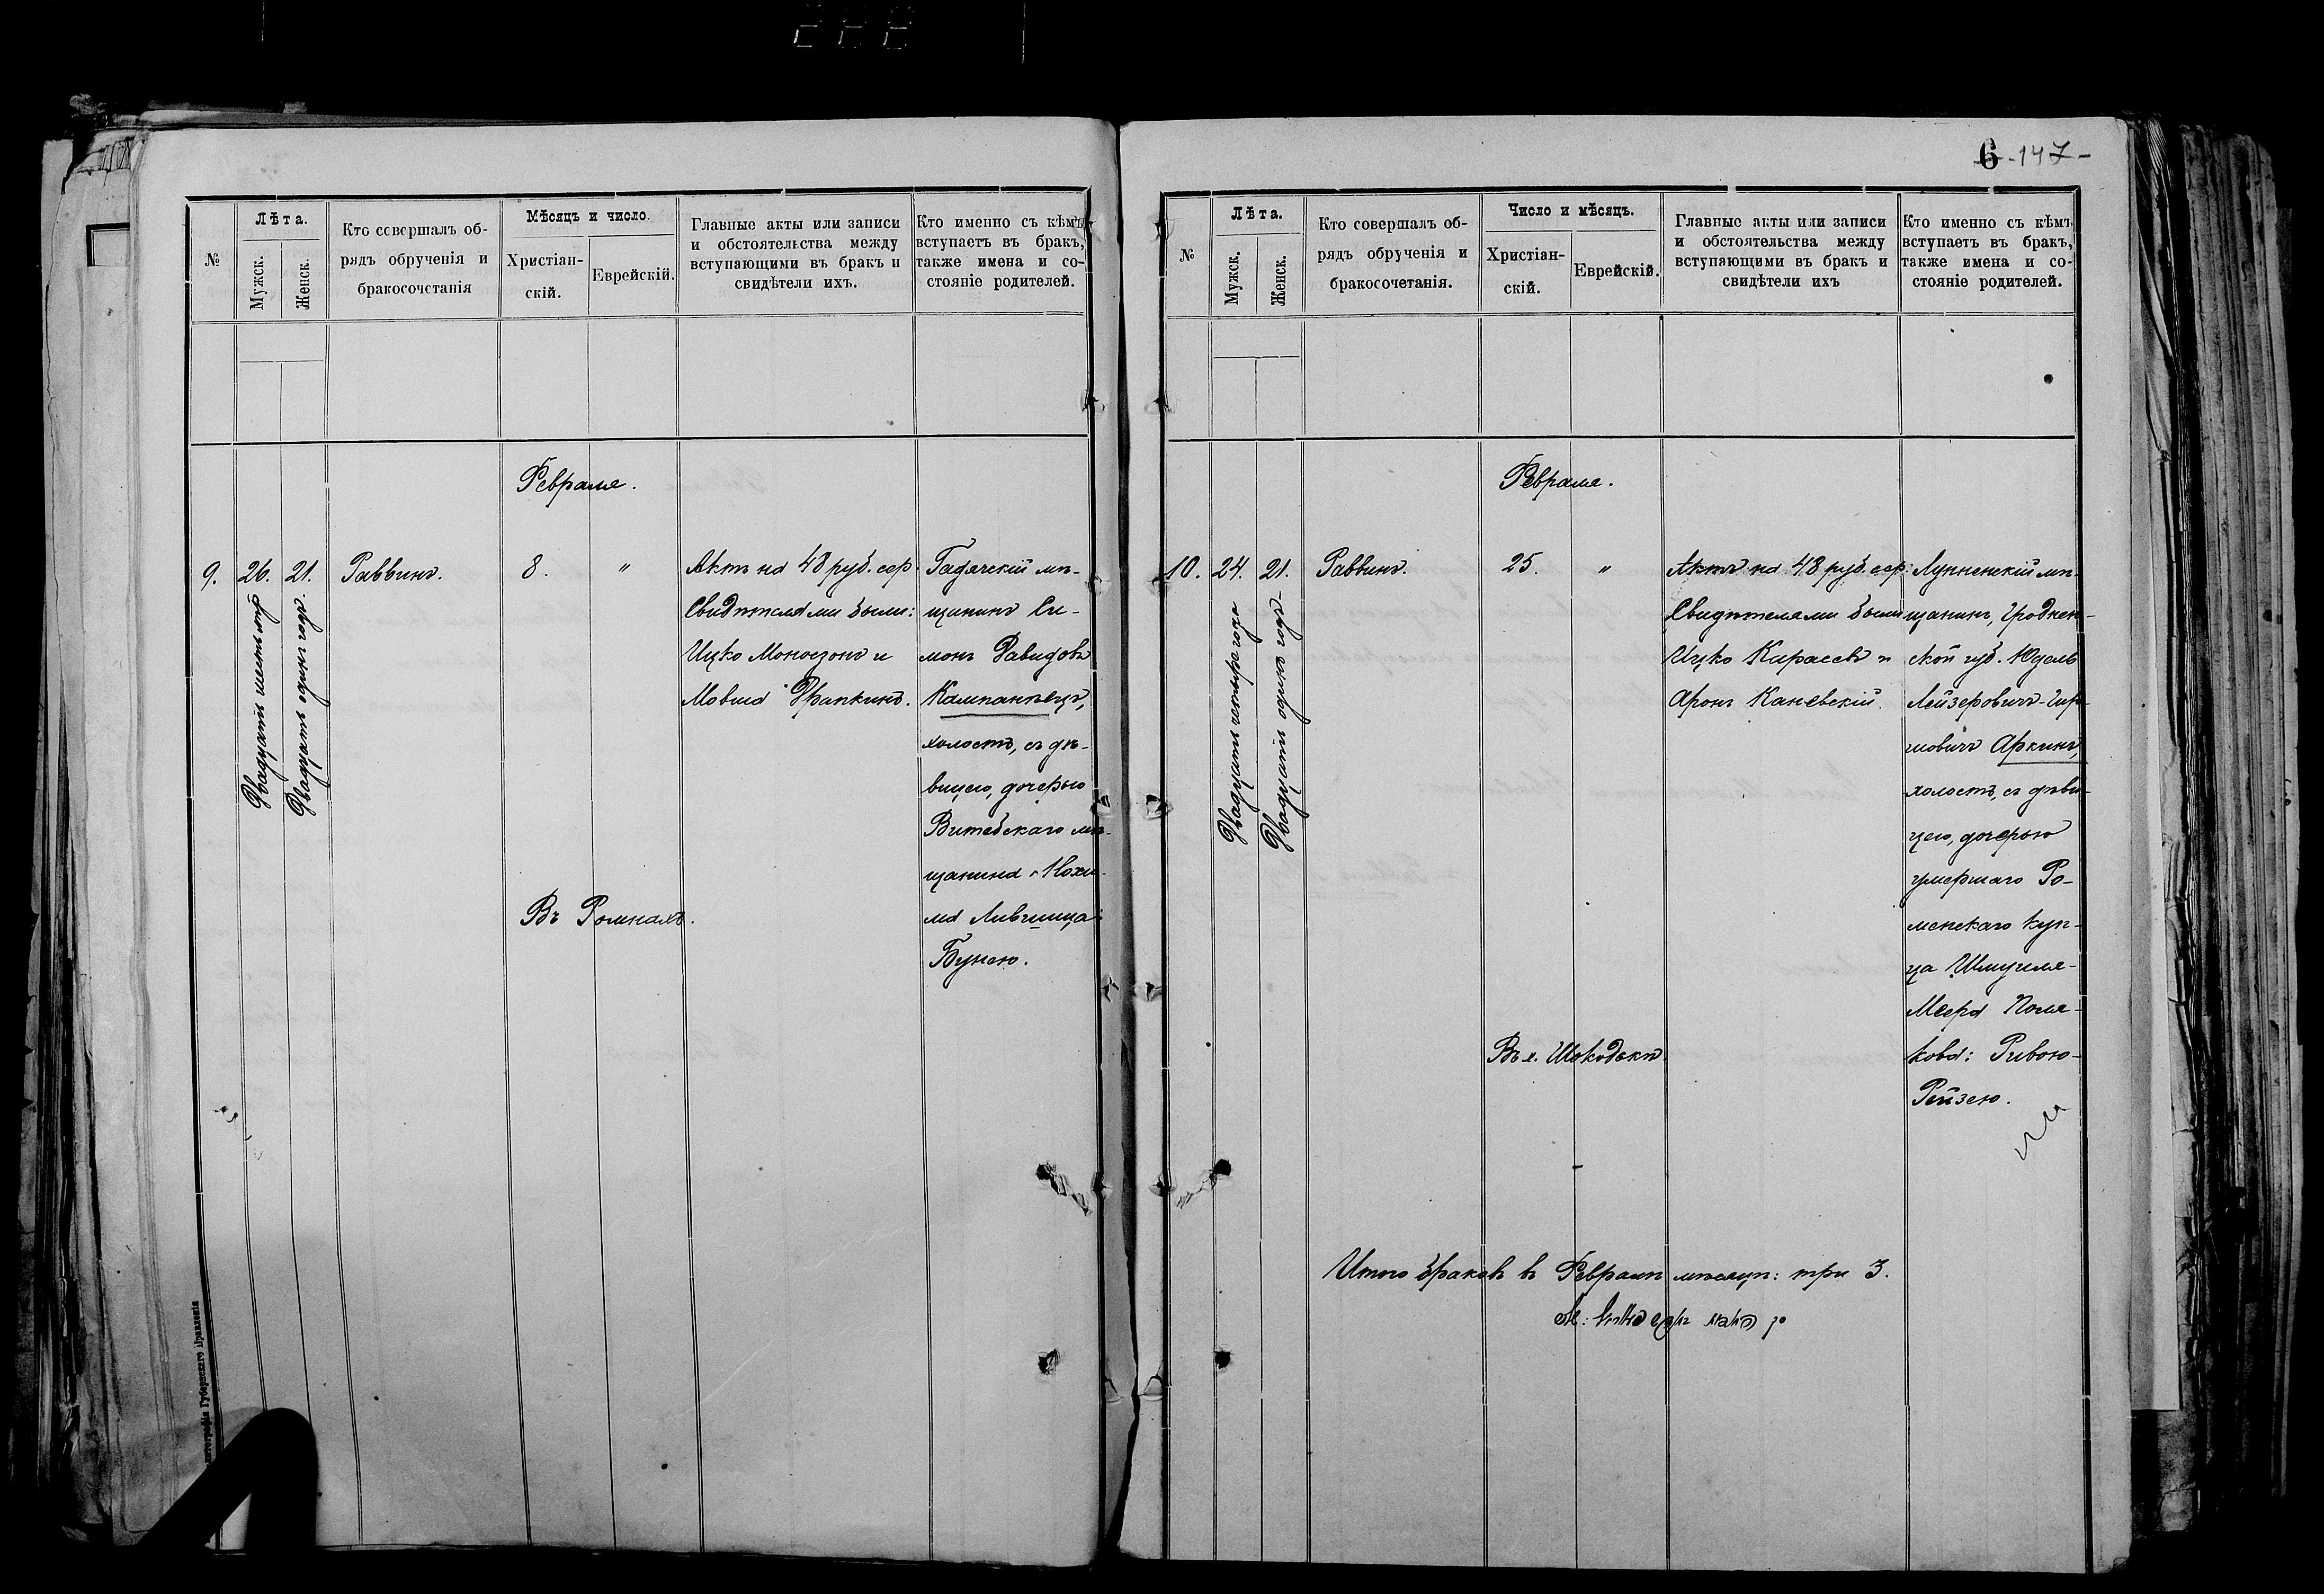 6 - 147 -
№
Лѣта.
Мужск.
Женск.
Кто совершалъ об-
рядъ обрученія и
бракосочетанія
Мѣсяцъ и число.
Христіан-
скій.
Еврейскій.
Главные акты или записи
и обстоятельства между
вступающими въ бракъ и
свидѣтели ихъ.
Кто именно съ кѣмъ
вступаетъ въ бракъ,
также имена и со-
стояніе родителей.
Февраля.
9.
26.
Двадцать шесть
21.
Двадцать одинъ годъ.
Раввинъ.
8.
"
Въ Ромнахъ.
Актъ на 48 руб. сер.
Свидѣтелями были:
Ицко Моносзонъ и
Мовша Драпкинъ.
Гадячскій мѣ-
щанинъ Си-
монъ Давидовъ
Кампанѣецъ,
холостъ, съ дѣ-
вицею, дочерью
Витебскаго мѣ-
щанина Нохи-
ма Лившица:
Бунею.
№
Лѣта.
Мужск.
Женск.
Кто совершалъ об-
рядъ обрученія и
бракосочетанія.
Число и мѣсяцъ.
Христіан-
скій.
Еврейскій.
Главные акты или записи
и обстоятельства между
вступающими въ бракъ и
свидѣтели ихъ
Кто именно съ кѣмъ
вступаетъ въ бракъ,
также имена и со-
стояніе родителей.
Февраля.
10.
24.
Двадцать четыре года
21.
Двадцать одинъ годъ
Раввинъ.
25.
"
Актъ на 48 руб. сер.
Свидѣтелями были
Ицко Карасевъ и
Аронъ Каневскій.
Лунненскій мѣ-
щанинъ, Гроднен-
ской губ. Юдель
Лейзеровичъ-Гир-
шовичъ Аркинъ,
холостъ, съ дѣви-
цею, дочерью
умершаго Ро-
менскаго куп-
ца Шмуиля-
Меера Поля-
кова: Ривою-
Рейзею.
Итого браковъ въ Февралѣ мѣсяцѣ: три 3.
Типографія Губернскаго Правленія